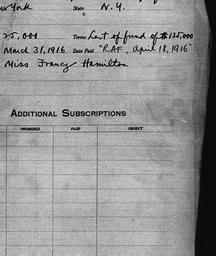 ew York State N.Y.
25,000 Terms Last of fund of $125,000
March 31, 1916 Date Paid "RAF, April 18, 1916"
Miss Francy Hamilton
ADDITIONAL SUBSCRIPTIONS
PROMISED PAID OBJECT